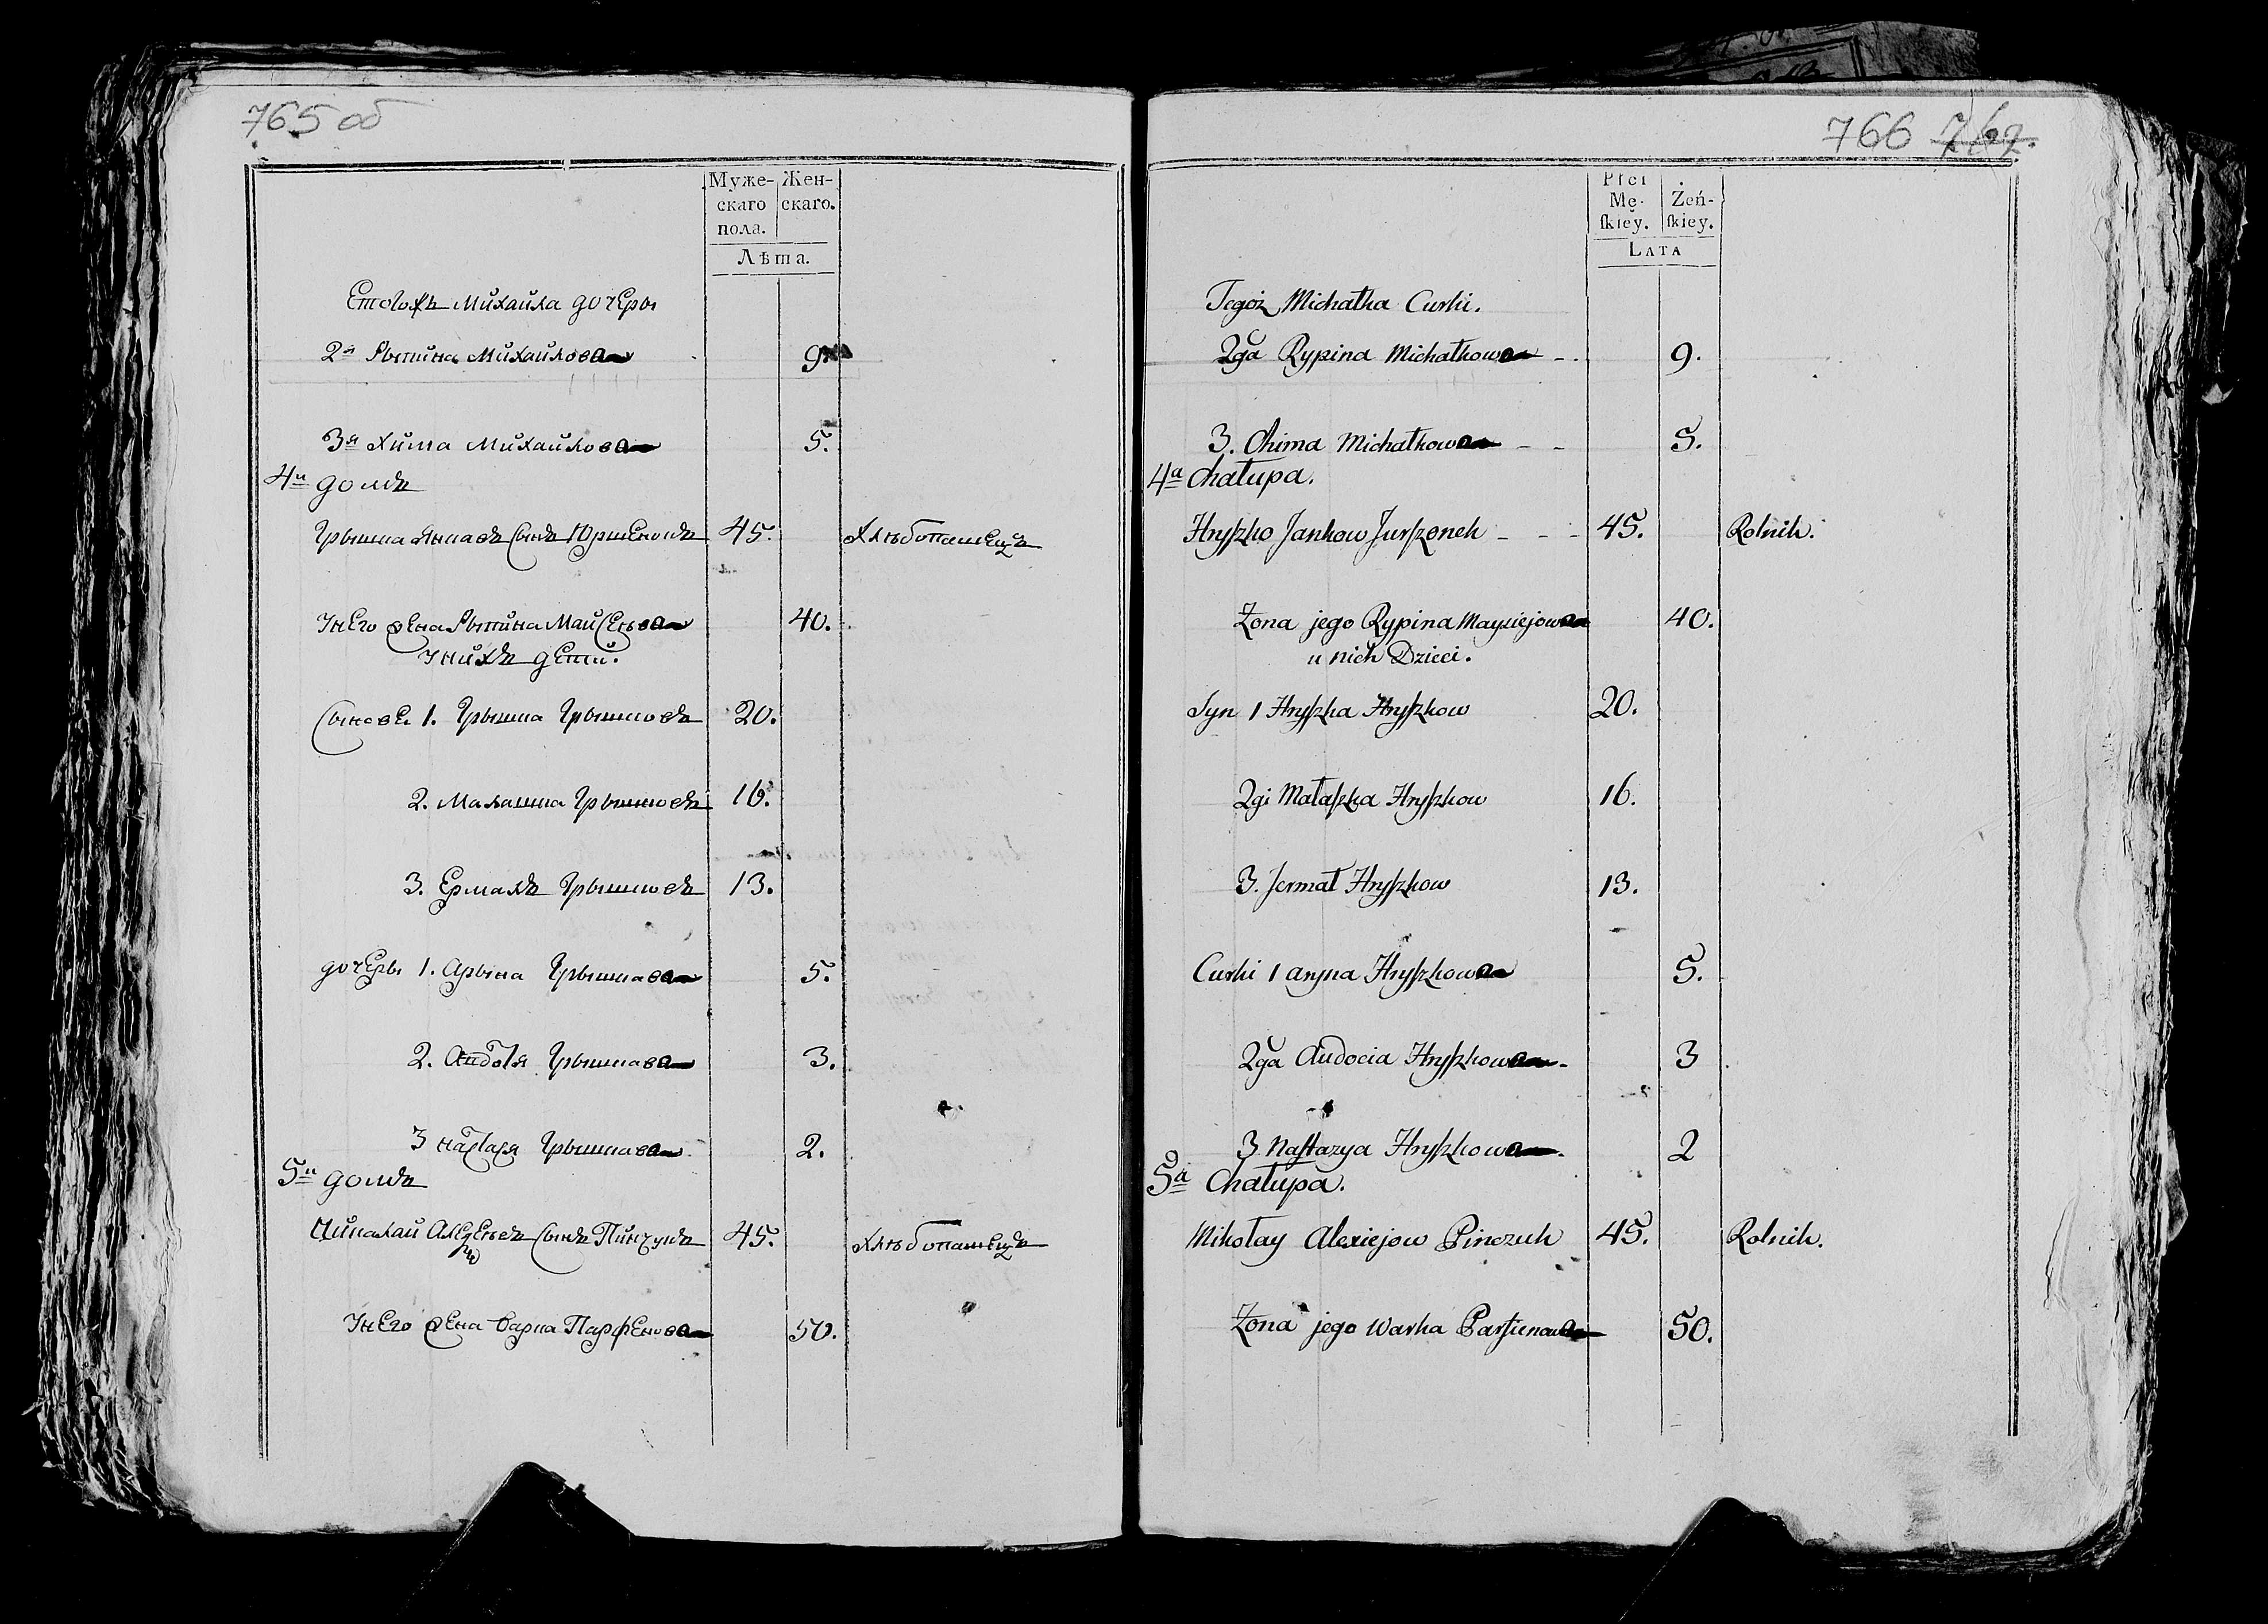 765 об
Муже- Жен-
скаго скаго.
пола.
Лѣта.
Етогожъ Михайла дочеры
2я Рыпина Михайлова 9.
3я Хима Михайлова 5.
4й домъ
Грышка Янкавъ сынъ Юршенокъ 45. Хлѣбопашецъ
У него жена Рыпина Майсеева 40.
У нихъ дети.
Сыновъя 1. Грышка Грышковъ 20.
2. Малашка Грышковъ 16.
3. Ермалъ Грышковъ 13.
дочеры 1. Арына Грышкава 5.
2. Грышкава 3.
3 Настазя Грышкава 2.
5й домъ
Миколай сынъ Пинчукъ 45. Хлѣбопашецъ
У него жена Варка Парфенова 50.
766 767.
Płci
Mę- Żeń-
ſkiey. ſkiey.
Lата
Tegoż Michałka Curki.
2ga Rypina Michałkowa 9.
3. Chima Michałkowa 5.
4a Chałupa.
Hryſzko Jankow Jurſzonek 45. Rolnik.
Żona jego Rypina Mayziejowa 40.
u nich Dzieci.
Syn 1 Hryſzka Hryſzkow 20.
2gi Małaſzka Hryſzkow 16.
3. Jermał Hryſzkow 13.
Curki 1 aryna Hryſzkowa 5.
2ga Audocia Hryſzkowa 3
3. Naſtazya Hryſzkowa 2
5a Chałupa.
Mikołay Alexiejow Pinczuk 45. Rolnik.
Żona jego Warka Parfienowa 50.